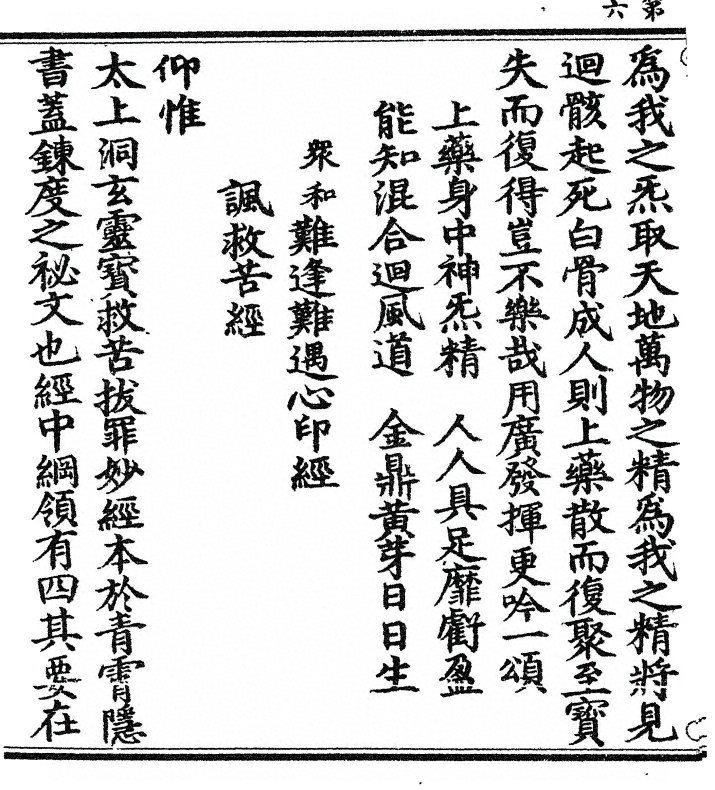 第六
為我之炁取天地萬物之精為我之精將見
迴骸起死白骨成人則上藥散而復聚至寶
失而復得豈不樂哉用廣發揮更吟一頌
上藥身中神炁精　人人具足靡虧盈
能知混合迴風道　金鼎黃芽日日生
衆和難逢難遇心印經
諷救苦經
仰惟
太上洞玄靈寶救苦拔罪妙經本於青霄隱
書蓋鍊度之祕文也經中綱領有四其要在